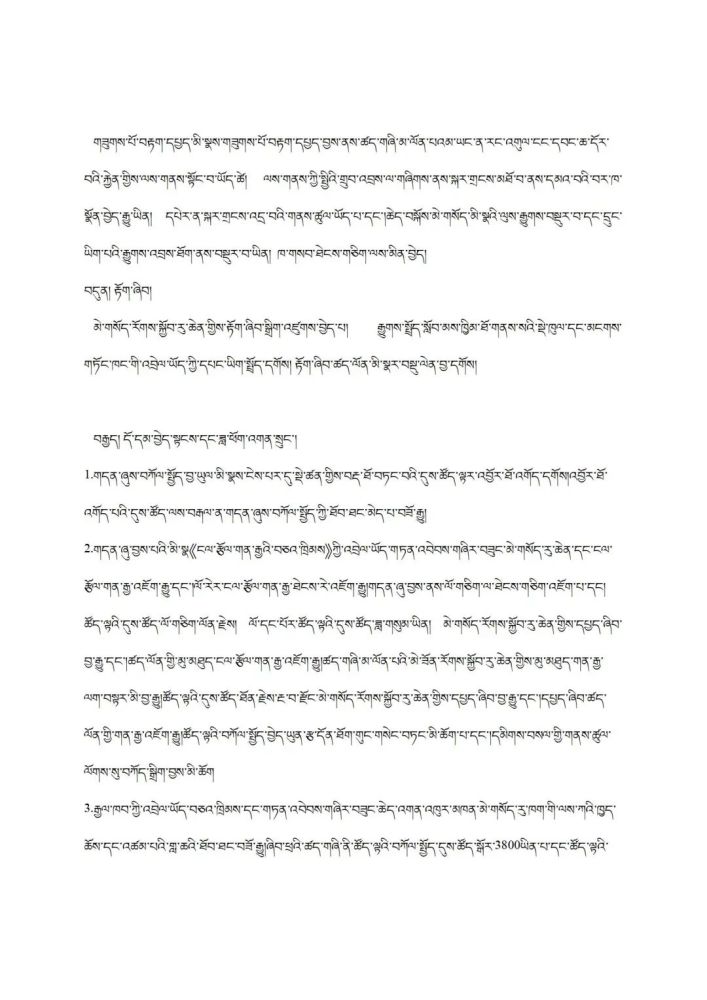 གཟུགས་པོ་བརྟག་དཔྱད་མི་སྣས་གཟུགས་པོ་བརྟག་དཔྱད་བྱས་ནས་ཚད་གཞི་མ་ལོན་པའམ་ཡང་ན་རང་འགུལ་ངང་དབང་ཆ་དོར་
བའི་རྐྱེན་གྱིས་ལས་གནས་སྟོང་བ་ཡོད་ཚེ། ལས་གནས་ཀྱི་སྤྱིའི་གྲུབ་འབྲས་ལ་གཞིགས་ནས་སྐར་གྲངས་མཐོ་བ་ནས་དམའ་བའི་བར་ཁ་
སྣོན་བྱེད་རྒྱུ་ཡིན། དཔེར་ན་སྐར་གྲངས་འདྲ་བའི་གནས་ཚུལ་ཡོད་པ་དང་།ཆེད་བསྐོས་མེ་གསོད་མི་སྣའི་ལུས་རྒྱུགས་བསྡུར་བ་དང་དྲུང་
ཡིག་པའི་རྒྱུགས་འབྲས་ཐོག་ནས་བསྡུར་བ་ཡིན། ཁ་གསབ་ཐེངས་གཅིག་ལས་མིན་བྱེད།
བདུན། རྟོག་ཞིབ།
མེ་གསོད་རོགས་སྐྱོབ་རུ་ཆེན་གྱིས་རྟོག་ཞིབ་སྒྲིག་འཛུགས་བྱེད་པ། རྒྱུགས་སྤྲོད་སློབ་མས་ཁྱིམ་ཐོ་གནས་སའི་སྡེ་ཁུལ་དང་མངགས་
གཏོང་ཁང་གི་འབྲེལ་ཡོད་ཀྱི་དཔང་ཡིག་སྤྲོད་དགོས། རྟོག་ཞིབ་ཚད་ལོན་མི་སྣར་བསྡུ་ལེན་བྱ་དགོས།
བརྒྱད། དོ་དམ་བྱེད་སྟངས་དང་ཟླ་ཕོག་འགན་སྲུང་།
1.གདན་ཞུས་བཀོལ་སྤྱོད་བྱ་ཡུལ་མི་སྣས་ངེས་པར་དུ་སྡེ་ཚན་གྱིས་བརྡ་ཐོ་བཏང་བའི་དུས་ཚོད་ལྟར་འབྱོར་ཐོ་འགོད་དགོས།འབྱོར་ཐོ་
འགོད་པའི་དུས་ཚོད་ལས་བརྒལ་ན་གདན་ཞུས་བཀོལ་སྤྱོད་ཀྱི་ཐོབ་ཐང་མེད་པ་བཟོ་རྒྱུ།
2.གདན་ཞུ་བྱས་པའི་མི་སྣ《ངལ་རྩོལ་གན་རྒྱའི་བཅའ་ཁྲིམས》ཀྱི་འབྲེལ་ཡོད་གཏན་འབེབས་གཞིར་བཟུང་མེ་གསོད་རུ་ཆེན་དང་ངལ་
རྩོལ་གན་རྒྱ་འཇོག་རྒྱུ་དང་།ལོ་རེར་ངལ་རྩོལ་གན་རྒྱ་ཐེངས་རེ་འཇོག་རྒྱུ།གདན་ཞུ་བྱས་ནས་ལོ་གཅིག་ལ་ཐེངས་གཅིག་འཇོག་པ་དང།
ཚོད་ལྟའི་དུས་ཚོད་ལོ་གཅིག་ལོན་རྗེས། ལོ་དང་པོར་ཚོད་ལྟའི་དུས་ཚོད་ཟླ་གསུམ་ཡིན། མེ་གསོད་རོགས་སྐྱོབ་རུ་ཆེན་གྱིས་དཔྱད་ཞིབ་
བྱ་རྒྱུ་དང་།ཚད་ལོན་གྱི་མུ་མཐུད་ངལ་རྩོལ་གན་རྒྱ་འཇོག་རྒྱུ།ཚད་གཞི་མ་ལོན་པའི་མེ་ཟོན་རོགས་སྐྱོབ་རུ་ཆེན་གྱིས་མུ་མཐུད་གན་རྒྱ་
ལག་བསྟར་མི་བྱ་རྒྱུ།ཚོད་ལྟའི་དུས་ཚོད་ཐོན་རྗེས་རྔ་བ་རྫོང་མེ་གསོད་རོགས་སྐྱོབ་རུ་ཆེན་གྱིས་དཔྱད་ཞིབ་བྱ་རྒྱུ་དང་།དཔྱད་ཞིབ་ཚད་
ལོན་གྱི་གན་རྒྱ་འཇོག་རྒྱུ།ཚོད་ལྟའི་བཀོལ་སྤྱོད་བྱེད་ཡུན་རྩ་དོན་ཐོག་གུང་གསེང་བཏང་མི་ཆོག་པ་དང་།དམིགས་བསལ་གྱི་གནས་ཚུལ་
ལོགས་སུ་བཀོད་སྒྲིག་བྱས་མི་ཆོག
3.རྒྱལ་ཁབ་ཀྱི་འབྲེལ་ཡོད་བཅའ་ཁྲིམས་དང་གཏན་འབེབས་གཞིར་བཟུང་ཆེད་འགན་འཁུར་མཁན་མེ་གསོད་རུ་ཁག་གི་ལས་ཀའི་ཁྱད་
ཆོས་དང་འཚམ་པའི་གླ་ཆའི་ཐོབ་ཐང་བཟོ་རྒྱུ།ཞིབ་ཕྲའི་ཚད་གཞི་ནི་ཚོད་ལྟའི་བཀོལ་སྤྱོད་དུས་ཚོད་སྒོར་3800ཡིན་པ་དང་ཚོད་ལྟའི་